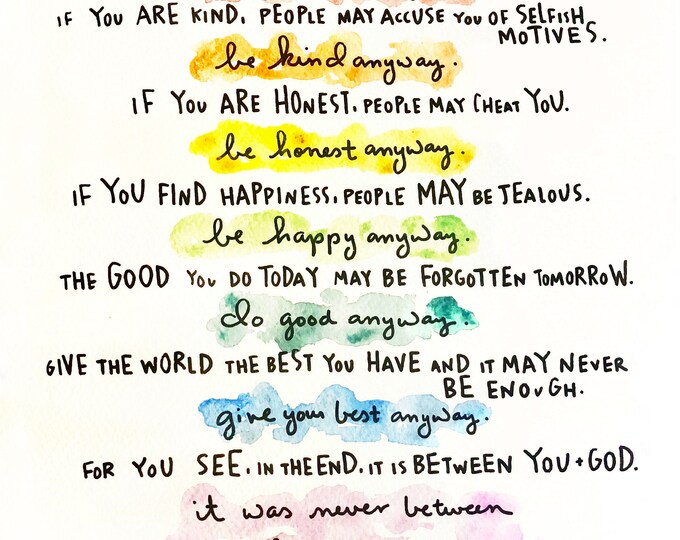 IF YOU ARE KIND, PEOPLE MAY ACCUSE YOU OF SELFISH
MOTIVES.
be kind anyway.
IF YOU ARE HONEST, PEOPLE MAY CHEAT YOU.
be honest anyway.
IF YOU FIND HAPPINESS, PEOPLE MAY BE JEALOUS.
be happy anyway.
THE GOOD YOU DO TODAY MAY BE FORGOTTEN TOMORROW.
do good anyway.
GIVE THE WORLD THE BEST YOU HAVE AND IT MAY NEVER
BE ENOUGH.
give your best anyway.
FOR YOU SEE, IN THE END, IT IS BETWEEN YOU + GOD.
it was never between